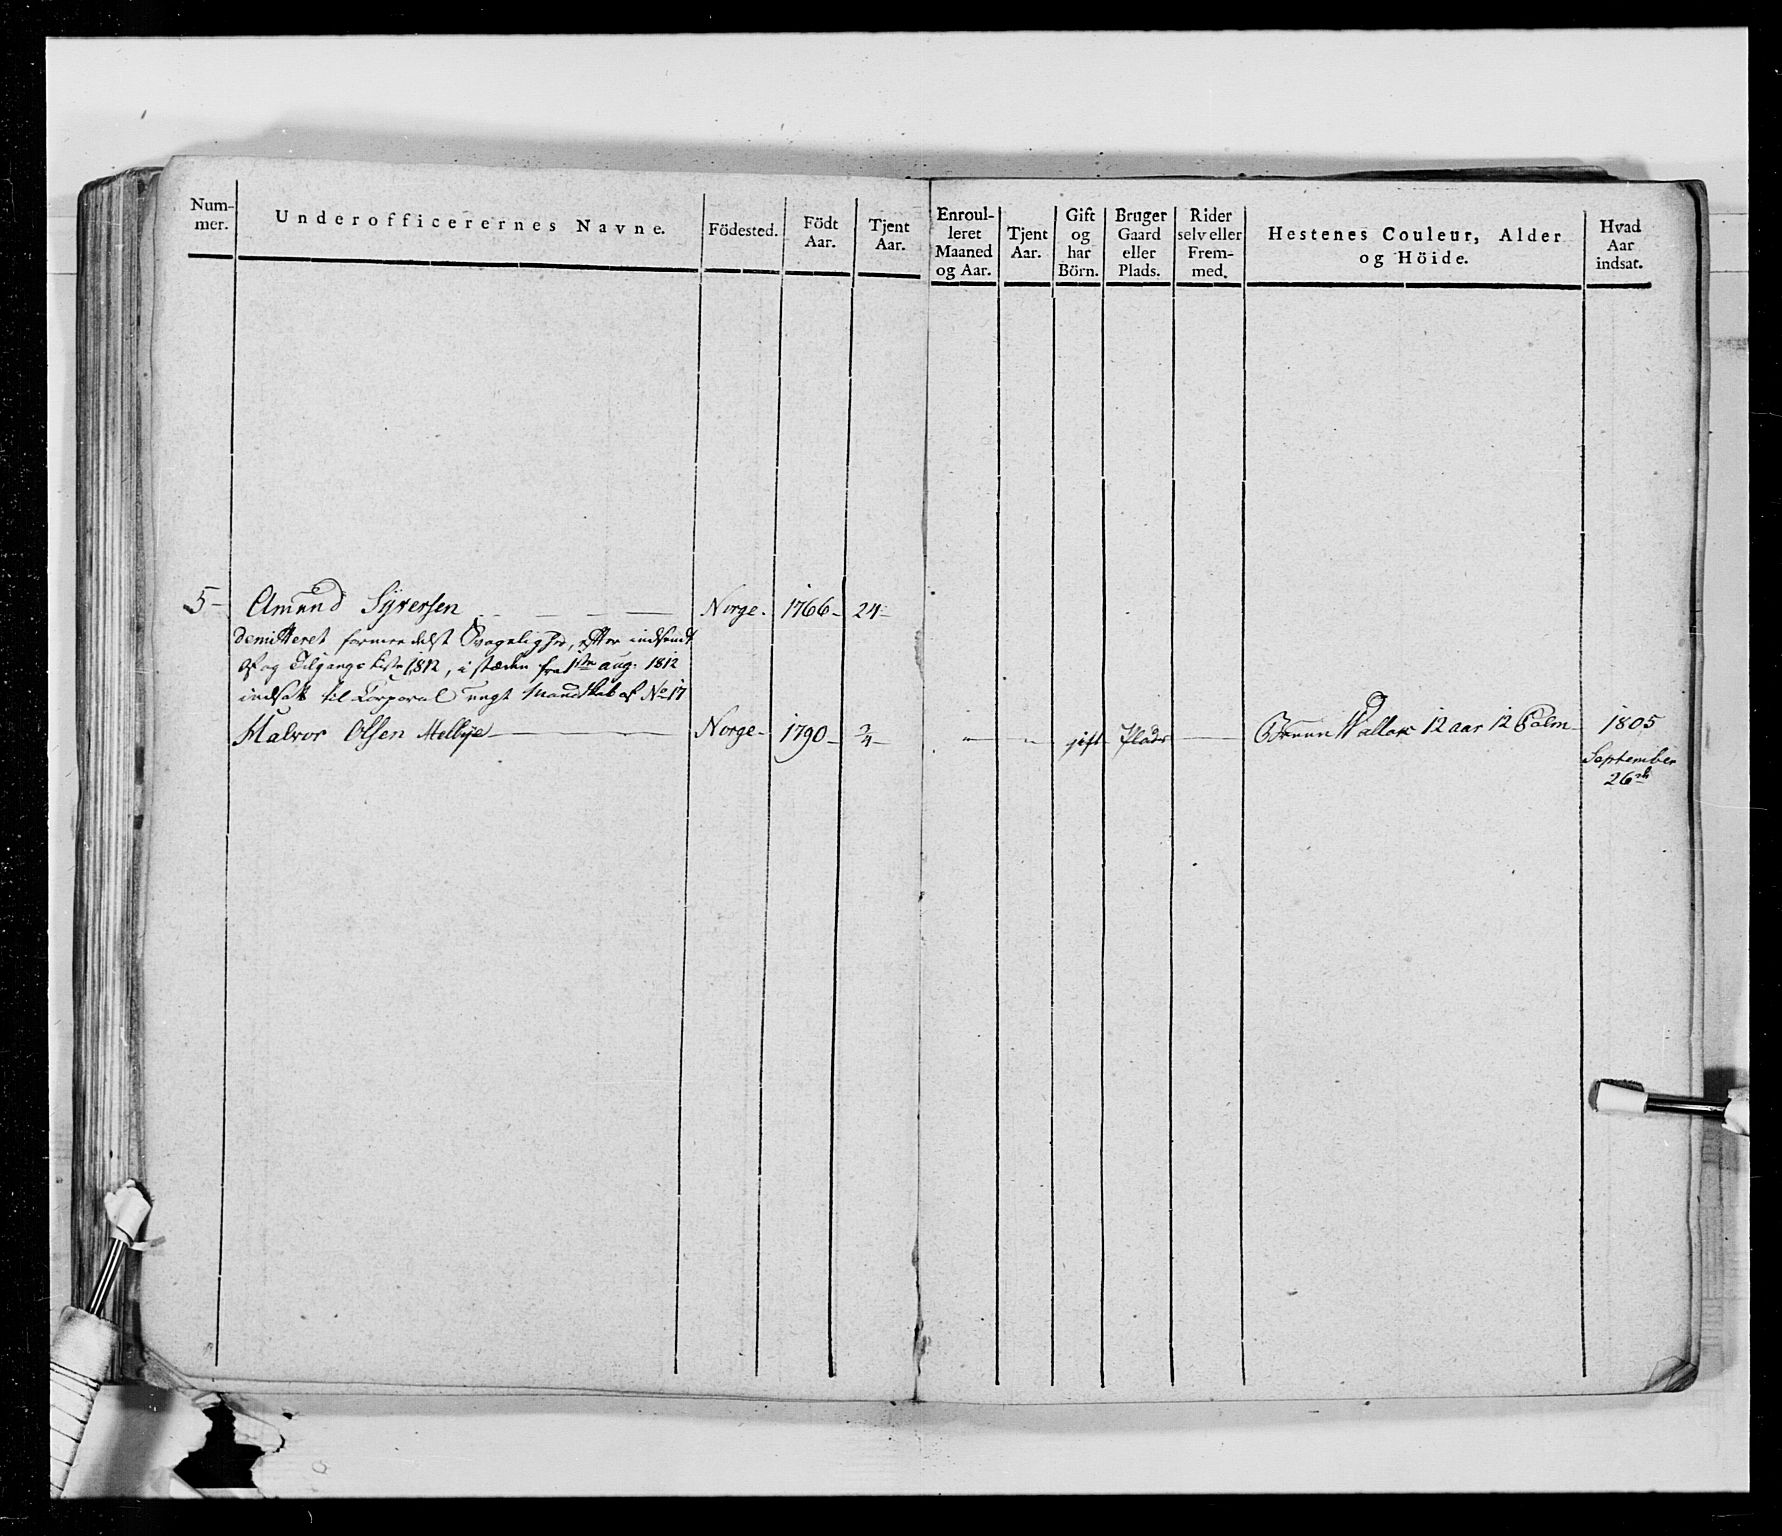 Num-
mer.
Underofficerernes Navne.
Födested.
Födt
Aar.
Tjent
Aar.
Enroul-
leret
Maaned
og Aar.
Tjent
Aar.
Gift
og
har
Börn.
Bruger
Gaard
eller
Plads.
Rider
selv eller
Frem-
med.
Hestenes Couleur, Alder
og Höide.
Hvad
Aar
indsat.
5 - Amund Syversen - - - Norge. 1766 - 24 -
demitteret formedelst Svagelighed, efter indsendt
Af og Tilgangs Liste 1812, i stæden fra 1ste aug. 1812
indsatt til Corporal ungt Mandskab af No 17
Halvor Olsen Melbye - Norge - 1790 - 3/4 - " " gift Plads - Bruun Wallak 12 aar 12 Palm - 1805
September
26de